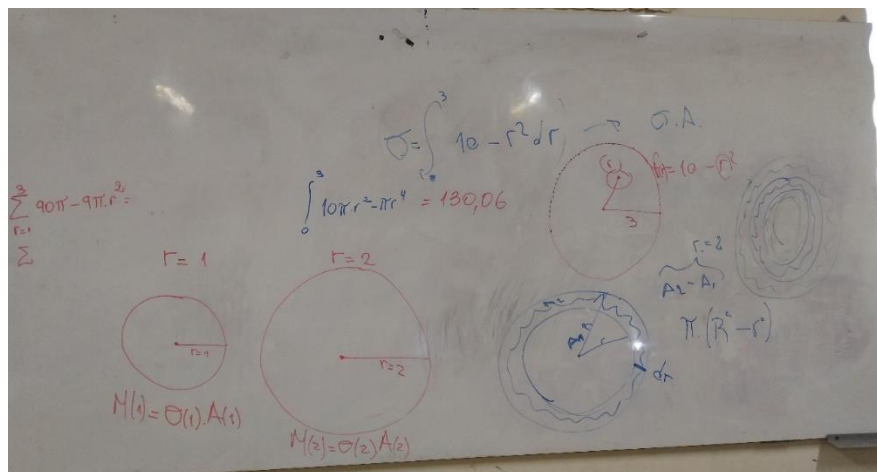 σ = ∫₀³ 10 - r² dr → σ.A.
∑ᵣ₌₁³ 90π - 9π.r² =
∑
∫₀³ 10π.r² - πr⁴ = 130,06
= 10 - r²
r
3
r = 1
r=1
M(1) = σ(1).A(1)
r = 2
r=2
M(2) = σ(2)A(2)
r=2
A₂ - A₁
π.(R² - r²)
A₁
R
r
dr